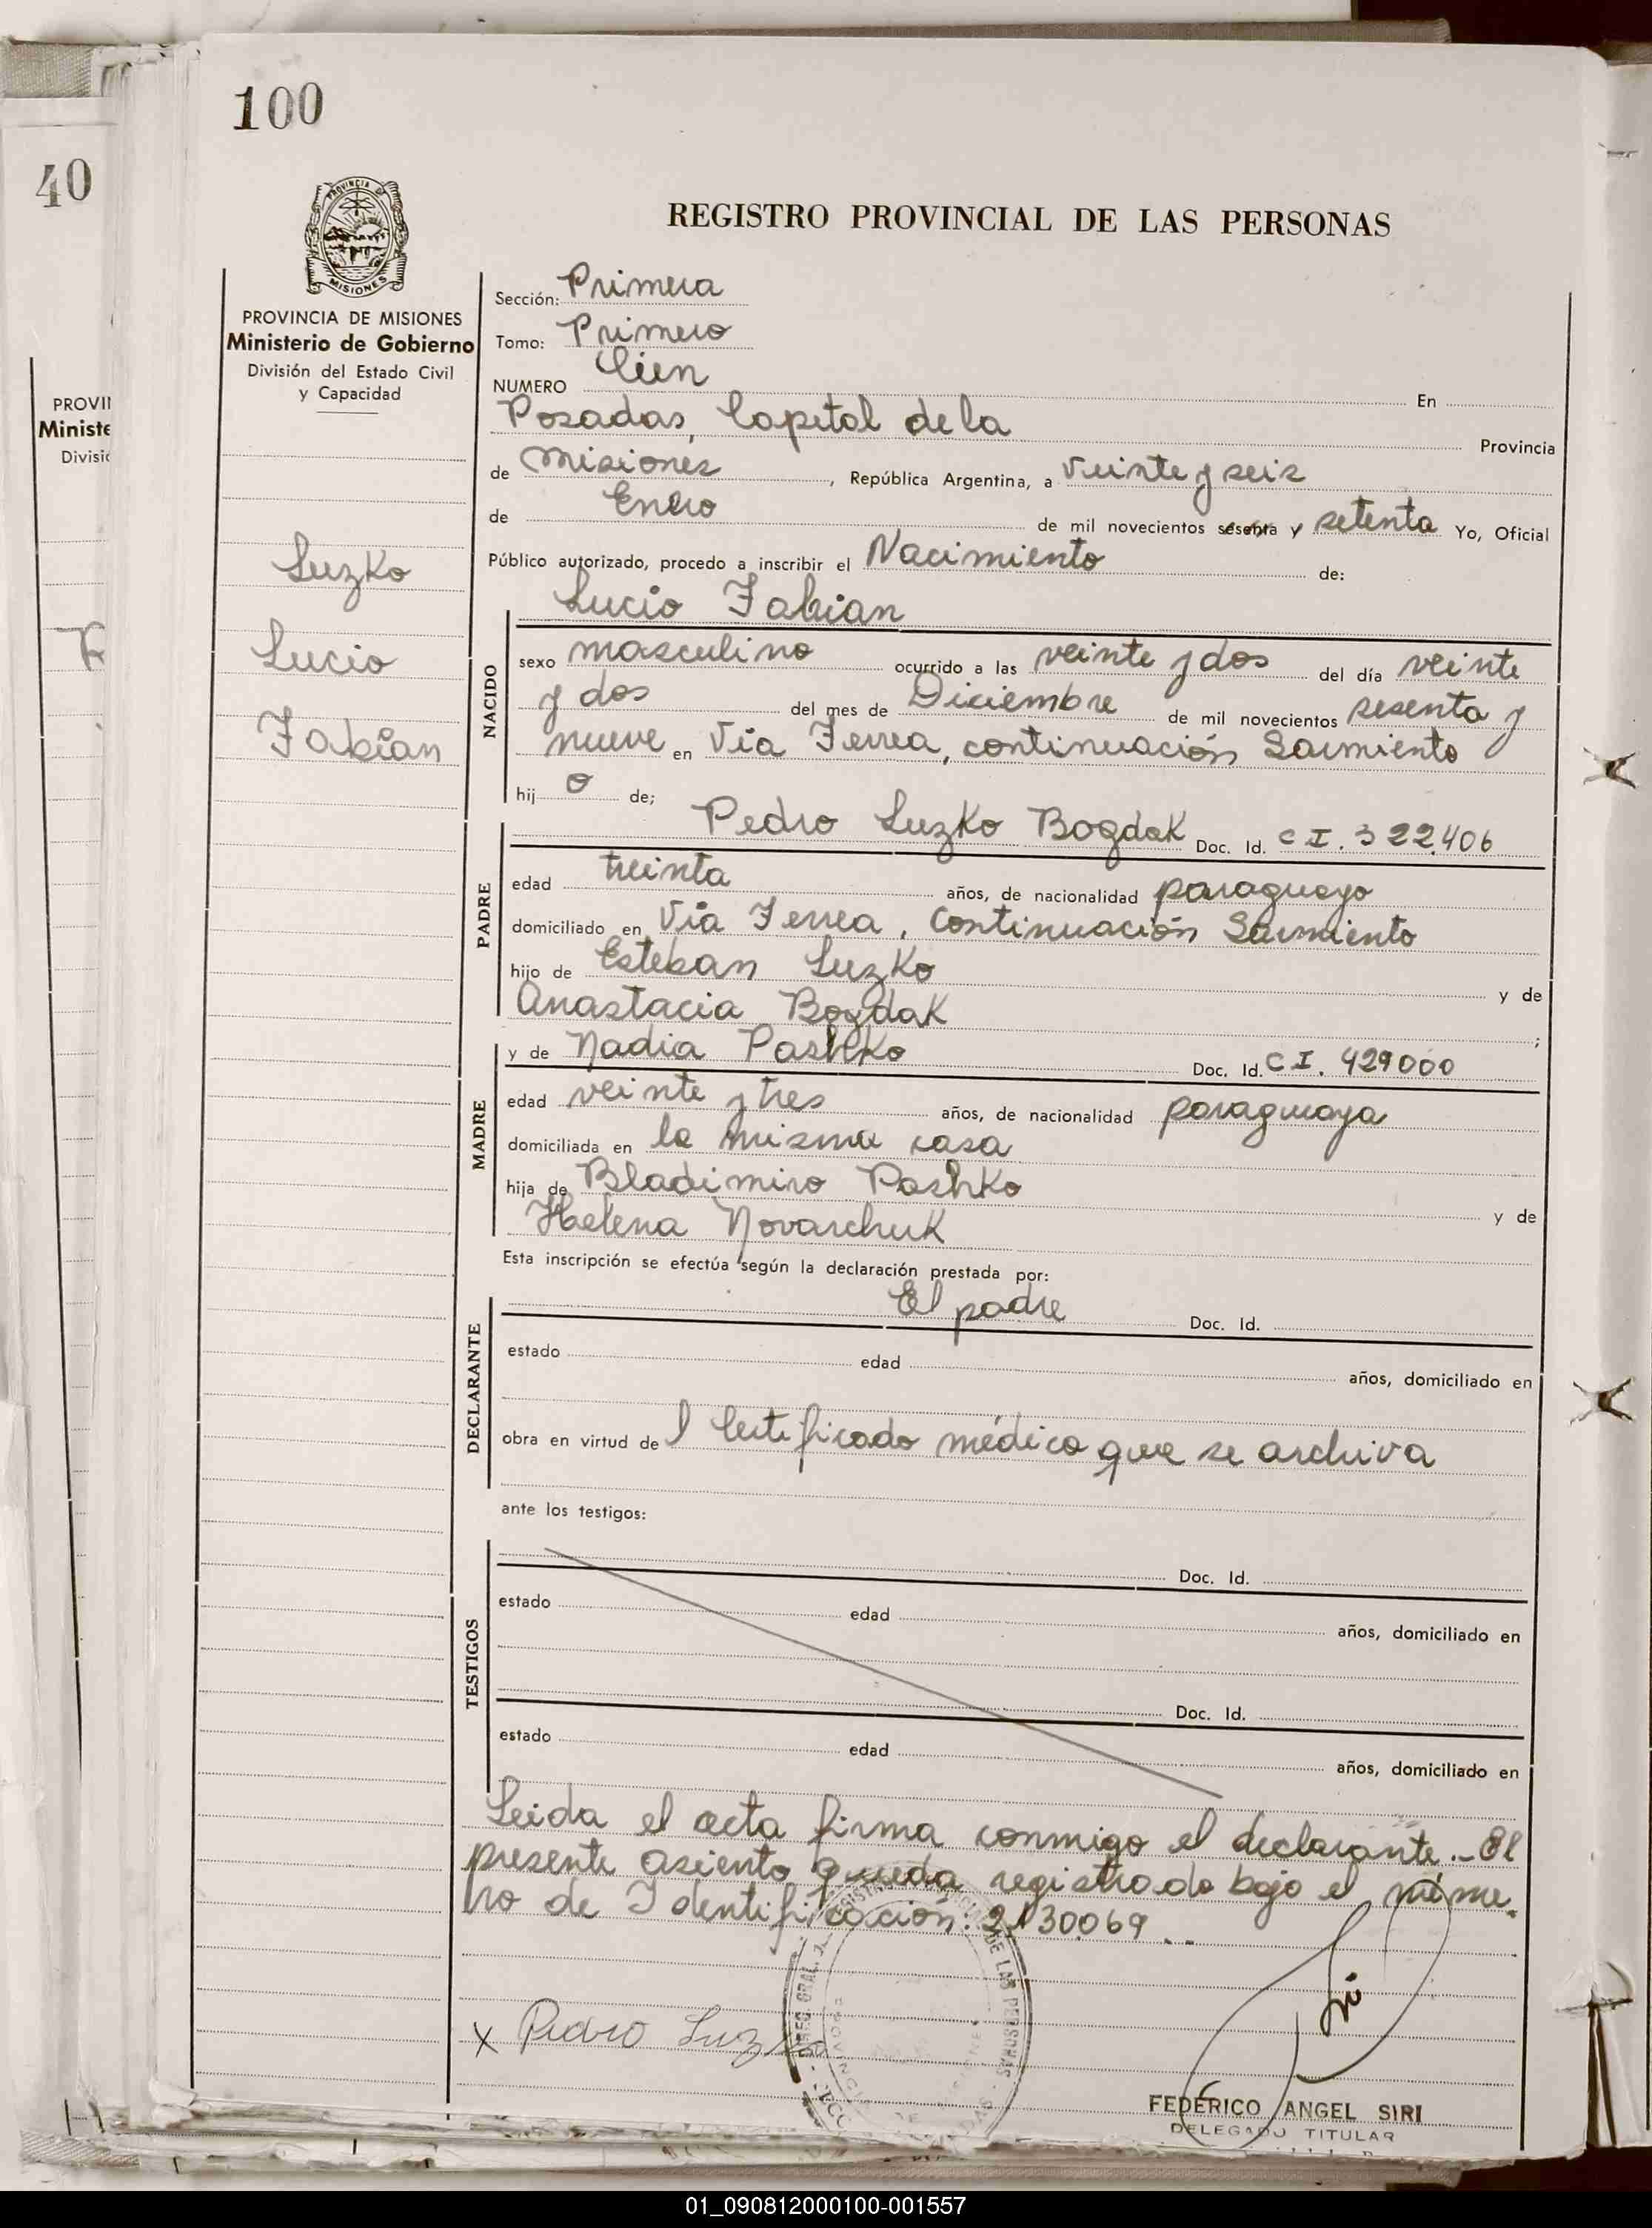 100
40
PROVINCIA DE
MISIONES
REGISTRO PROVINCIAL DE LAS PERSONAS
PROVINCIA DE MISIONES
Ministerio de Gobierno
División del Estado Civil
y Capacidad
PROVIN
Ministe
Divisió
Luzko
Lucio
Fabian
Sección: Primera
Tomo: Primero
NUMERO Cien En
Posadas, Capital de la Provincia
de Misiones, República Argentina, a veinte y seis
de Enero de mil novecientos sesenta y setenta Yo, Oficial
Público autorizado, procedo a inscribir el Nacimiento de:
Lucio Fabian
NACIDO
sexo masculino ocurrido a las veinte y dos del día veinte
y dos del mes de Diciembre de mil novecientos sesenta y
nueve en Via Ferrea, continuación Sarmiento
hij o de;
Pedro Luzko Bogdak Doc. Id. C I. 322.406
PADRE
edad treinta años, de nacionalidad paraguayo
domiciliado en Via Ferrea, Continuación Sarmiento
hijo de Esteban Luzko y de
Anastacia Bogdak ;
y de Nadia Pashko Doc. Id. C I. 429000
MADRE
edad veinte y tres años, de nacionalidad paraguaya
domiciliada en la misma casa
hija de Bladimiro Pashko y de
Helena Novarchuk
Esta inscripción se efectúa según la declaración prestada por:
El padre Doc. Id.
DECLARANTE
estado edad años, domiciliado en
obra en virtud de l Certificado médico que se archiva
ante los testigos:
TESTIGOS
Doc. Id.
estado edad años, domiciliado en
Doc. Id.
estado edad años, domiciliado en
Leida el acta firma conmigo el declarante._ El
presente asiento queda registrado bajo el núme-
ro de Identificación: 21130069 ..
x Pedro Luzko
DE LAS PERSONAS
PROVINCIA DE MISIONES
FEDERICO ANGEL SIRI
DELEGADO TITULAR
01_090812000100-001557